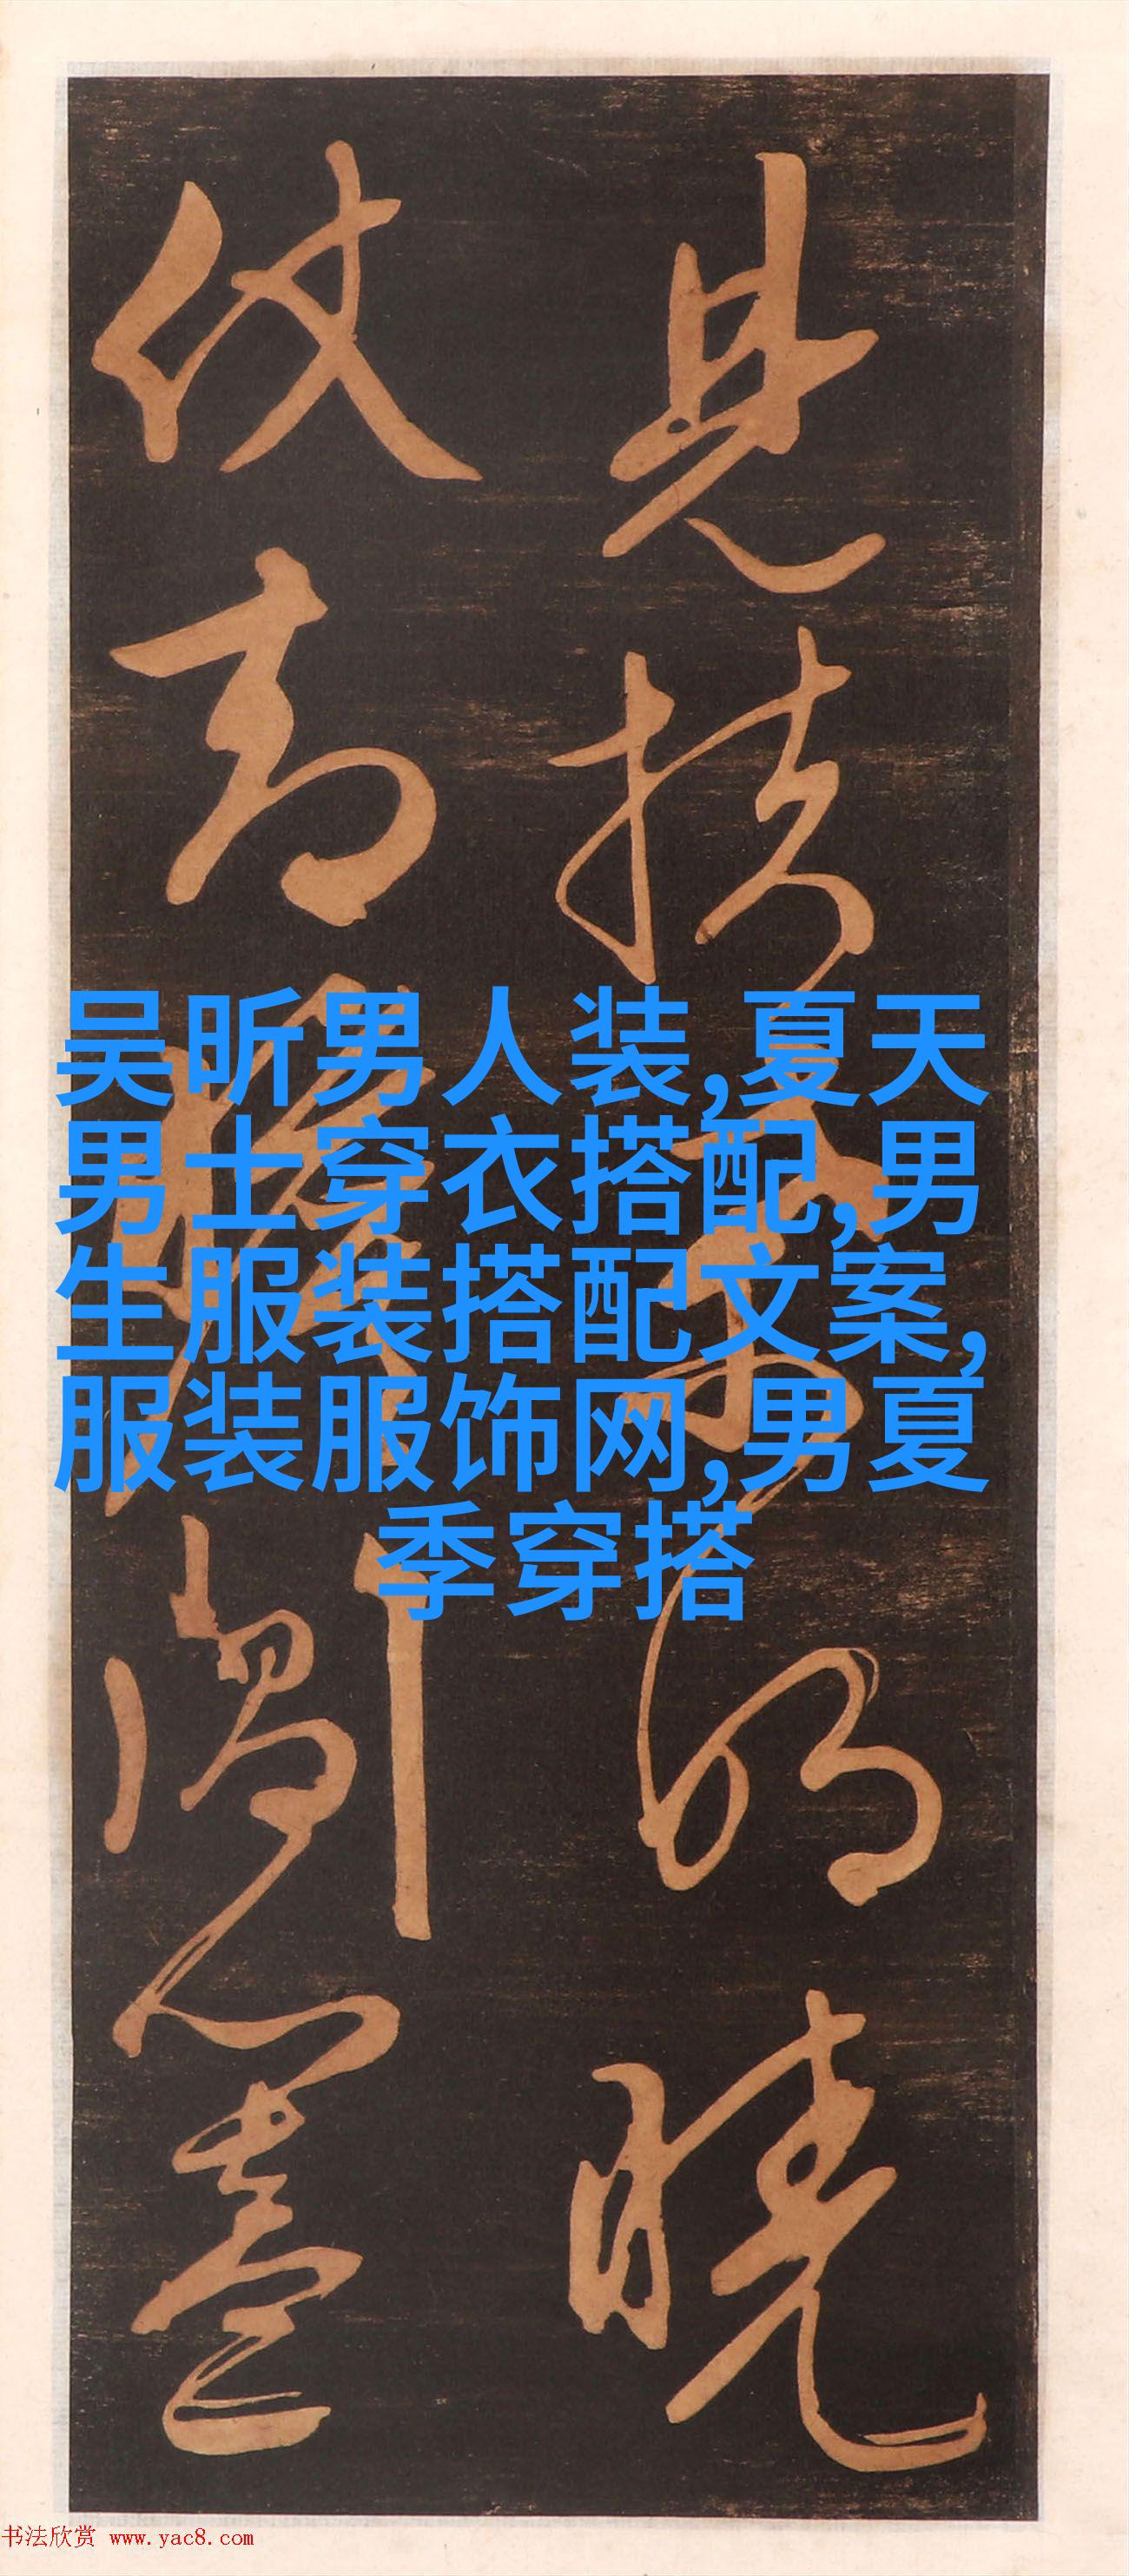 見扶桑明曉
仗高騰閱盡
吴昕男人装,夏天
男士穿衣搭配,男
生服装搭配文案,
服装服饰网,男夏
季穿搭
书法欣赏 www.yac8.com